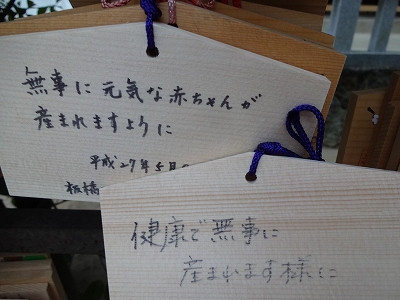 無事に元気な赤ちゃんが
産まれますように
平成27年5月
板橋
健康で無事に
産まれます様に